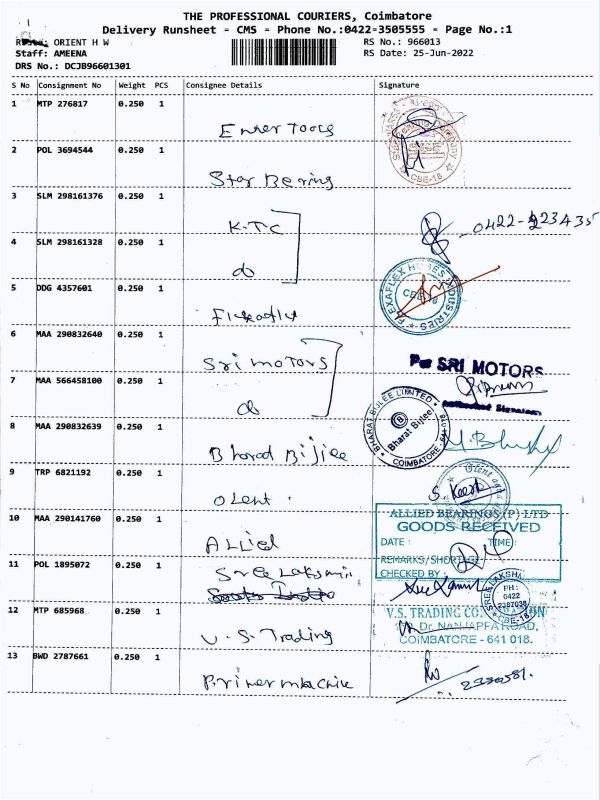 THE PROFESSIONAL COURIERS, Coimbatore
Delivery Runsheet - CMS - Phone No.:0422-3505555 - Page No.:1
ORIENT H W
RS No.: 966013
Staff: AMEENA
RS Date: 25-Jun-2022
DRS No.: DCJB96601301
S No Consignment No Weight PCS Consignee Details Signature
1 MTP 276817 0.250 1
CBE-18
2 POL 3694544 0.250 1
Star Bering
3 SLM 298161376 0.250 1
K.T.C
4 SLM 298161328 0.250 1
do
5 DDG 4357601 0.250 1
FLEXAFLEX HOSES INDUSTRIES
6 MAA 290832640 0.250 1
Sri motors
Per SRI MOTORS
7 MAA 566458100 0.250 1
do
8 MAA 290832639 0.250 1
Bharad Bijlee
BHARAT BIJLEE LIMITED
Bharat Bijlee
COIMBATORE
9 TRP 6821192 0.250 1
Olent
S. Keerth
10 MAA 290141760 0.250 1
Allied
ALLIED BEARINGS (P) LTD
GOODS RECEIVED
DATE : TIME:
REMARKS/SHORTAGE
CHECKED BY :
11 POL 1895072 0.250 1
Sree Laksmi
PH:
0422
2387038
CBE-18
12 MTP 685968 0.250 1
V.S. Trading
V.S. TRADING CORPORATION
Dr. NANJAPPA ROAD,
COIMBATORE - 641 018.
13 BWD 2787661 0.250 1